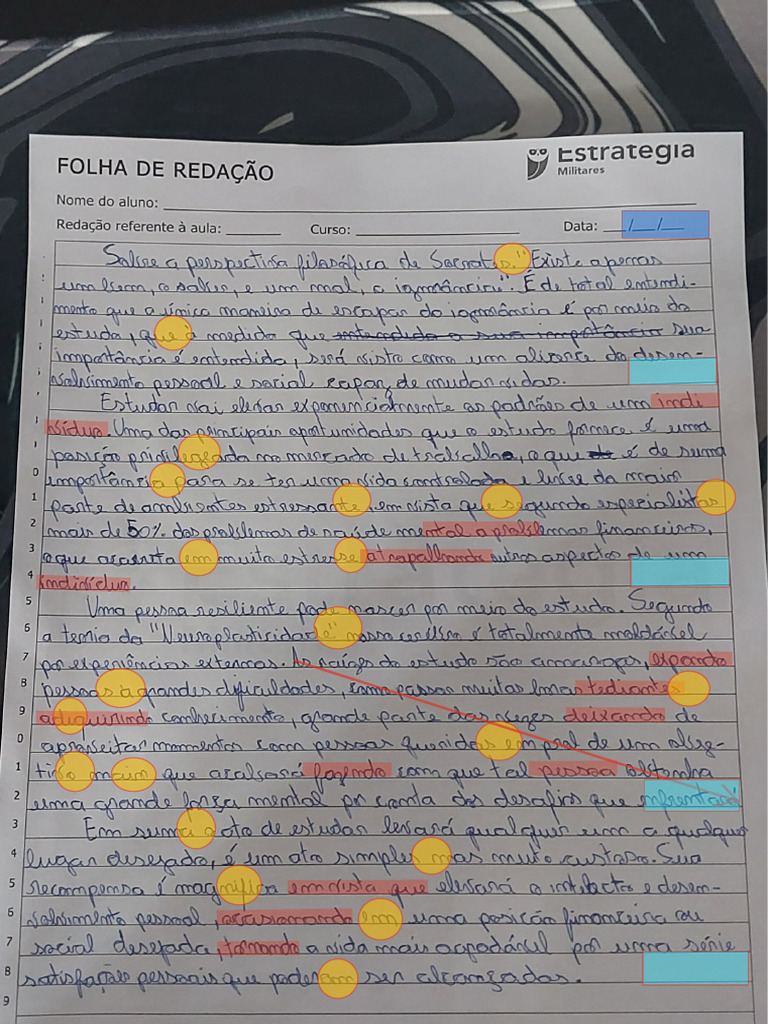 FOLHA DE REDAÇÃO
Estrategia
Militares
Nome do aluno:
Redação referente à aula: Curso: Data: / /
Sobre a perspectiva filosófica de Socrates." Existe apenas
um bem, o saber, e um mal, a ignorância". É de total entendi-
mento que a única maneira de escapar da ignorância é por meio do
estudo, que à medida que entendida a sua importância sua
importância é entendida, será visto como um alicerce do desen-
volvimento pessoal e social capaz de mudar vidas.
Estudar vai elevar exponencialmente os padrões de um indi
víduo. Uma das principais oportunidades que o estudo fornece é uma
posição privilegeada no mercado de trabalho, o que é de suma
0 importância para se ter uma vida controlada e livre da maior
1 parte de ambientes estressante, em vista que segundo especialistas
2 mais de 50% dos problemas de saúde mental a problemas financeiros,
3 o que acarreta em muito estresse atrapalhando outros aspectos de um
4 indivíduo.
5 Uma pessoa resiliente pode nascer por meio do estudo. Segundo
6 a teoria da "Neuroplasticidade" nosso cerébro é totalmente moldável
7 por experiências externas. As raízes do estudo são amargas, expondo
8 pessoas a grandes dificuldades, como passar muitas horas tediantes
9 adiquirindo conhecimento, grande parte das vezes deixando de
0 aproveitar momentos com pessoas queridas em prol de um obje-
1 tivo maior que acabará fazendo com que tal pessoa obtenha
2 uma grande força mental por conta dos desafios que enfrentará
3 Em suma o ato de estudar levará qualquer um a qualquer
4 lugar desejado, é um ato simples mas muito custoso. Sua
5 recompensa é magnífica em vista que elevará o intelecto e desen-
6 volvimento pessoal, ocasionando em uma posição financeira ou
7 social desejada, tornando a vida mais agradável por uma série
8 satisfações pessoais que poderam ser alcançadas.
9